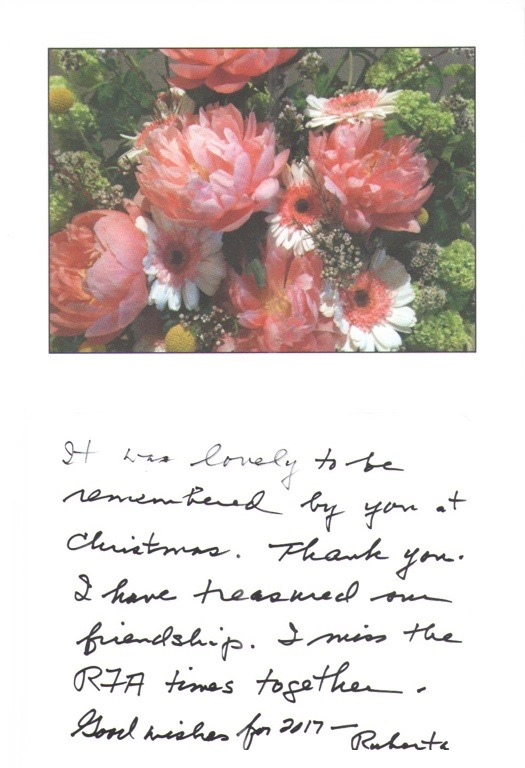 It was lovely to be
remembered by you at
Christmas. Thank you.
I have treasured our
friendship. I miss the
RFA times together.
Good wishes for 2017 — Roberta